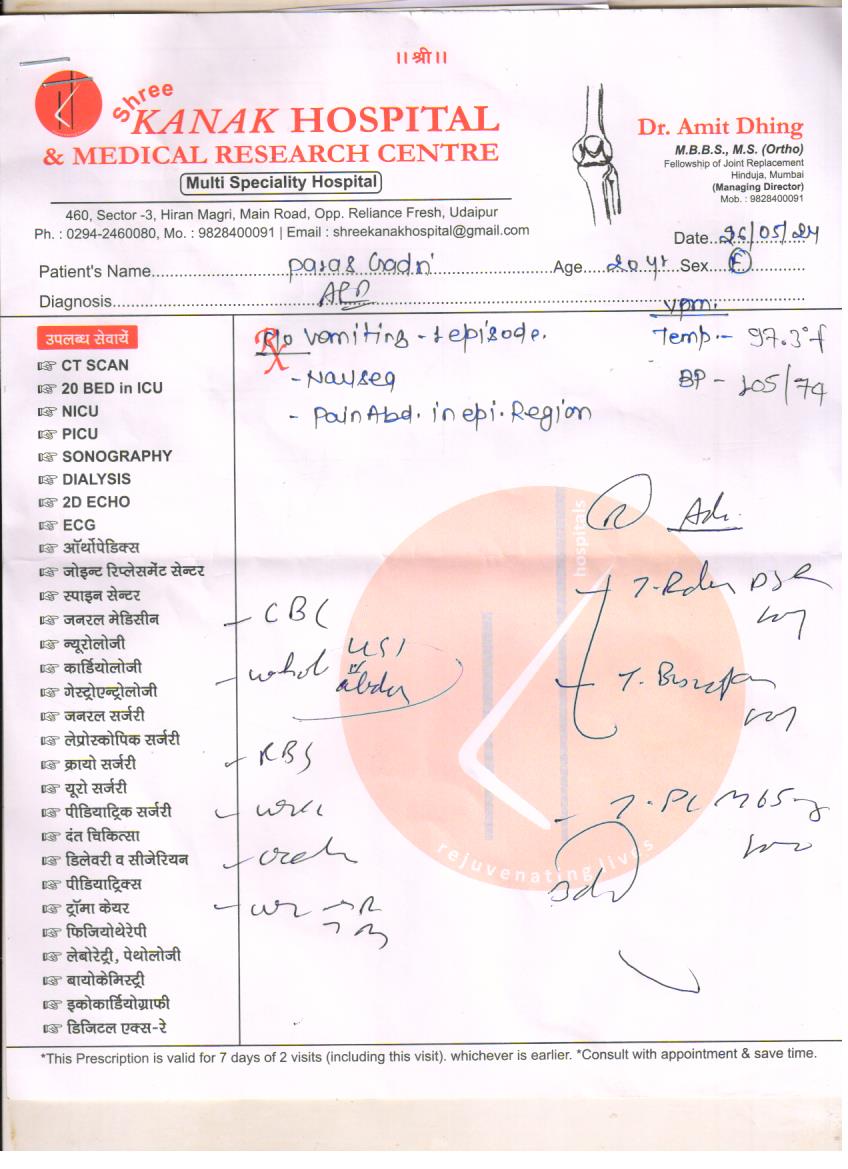 ।। श्री ।।
Shree
KANAK HOSPITAL
& MEDICAL RESEARCH CENTRE
Multi Speciality Hospital
460, Sector -3, Hiran Magri, Main Road, Opp. Reliance Fresh, Udaipur
Ph. : 0294-2460080, Mo. : 9828400091 | Email : shreekanakhospital@gmail.com
Dr. Amit Dhing
M.B.B.S., M.S. (Ortho)
Fellowship of Joint Replacement
Hinduja, Mumbai
(Managing Director)
Mob. : 9828400091
Date..26/05/24
Patient's Name.....Paras.....Age....20 yr Sex..F
Diagnosis.....
Rx
vomiting - 1 episode.
- Nausea
- Pain Abd. in epi. Region
Temp.- 97.3°f
BP - 105/74
उपलब्ध सेवायें
CT SCAN
20 BED in ICU
NICU
PICU
SONOGRAPHY
DIALYSIS
2D ECHO
ECG
ऑर्थोपेडिक्स
जोइन्ट रिप्लेसमेंट सेन्टर
स्पाइन सेन्टर
जनरल मेडिसीन
न्यूरोलोजी
कार्डियोलोजी
गेस्ट्रोएन्ट्रोलोजी
जनरल सर्जरी
लेप्रोस्कोपिक सर्जरी
क्रायो सर्जरी
यूरो सर्जरी
पीडियाट्रिक सर्जरी
दंत चिकित्सा
डिलेवरी व सीजेरियन
पीडियाट्रिक्स
ट्रॉमा केयर
फिजियोथेरेपी
लेबोरेट्री, पेथोलोजी
बायोकेमिस्ट्री
इकोकार्डियोग्राफी
डिजिटल एक्स-रे
- CBC
- whol
- RBS
R Adv.
hospitals
rejuvenating lives
*This Prescription is valid for 7 days of 2 visits (including this visit). whichever is earlier. *Consult with appointment & save time.